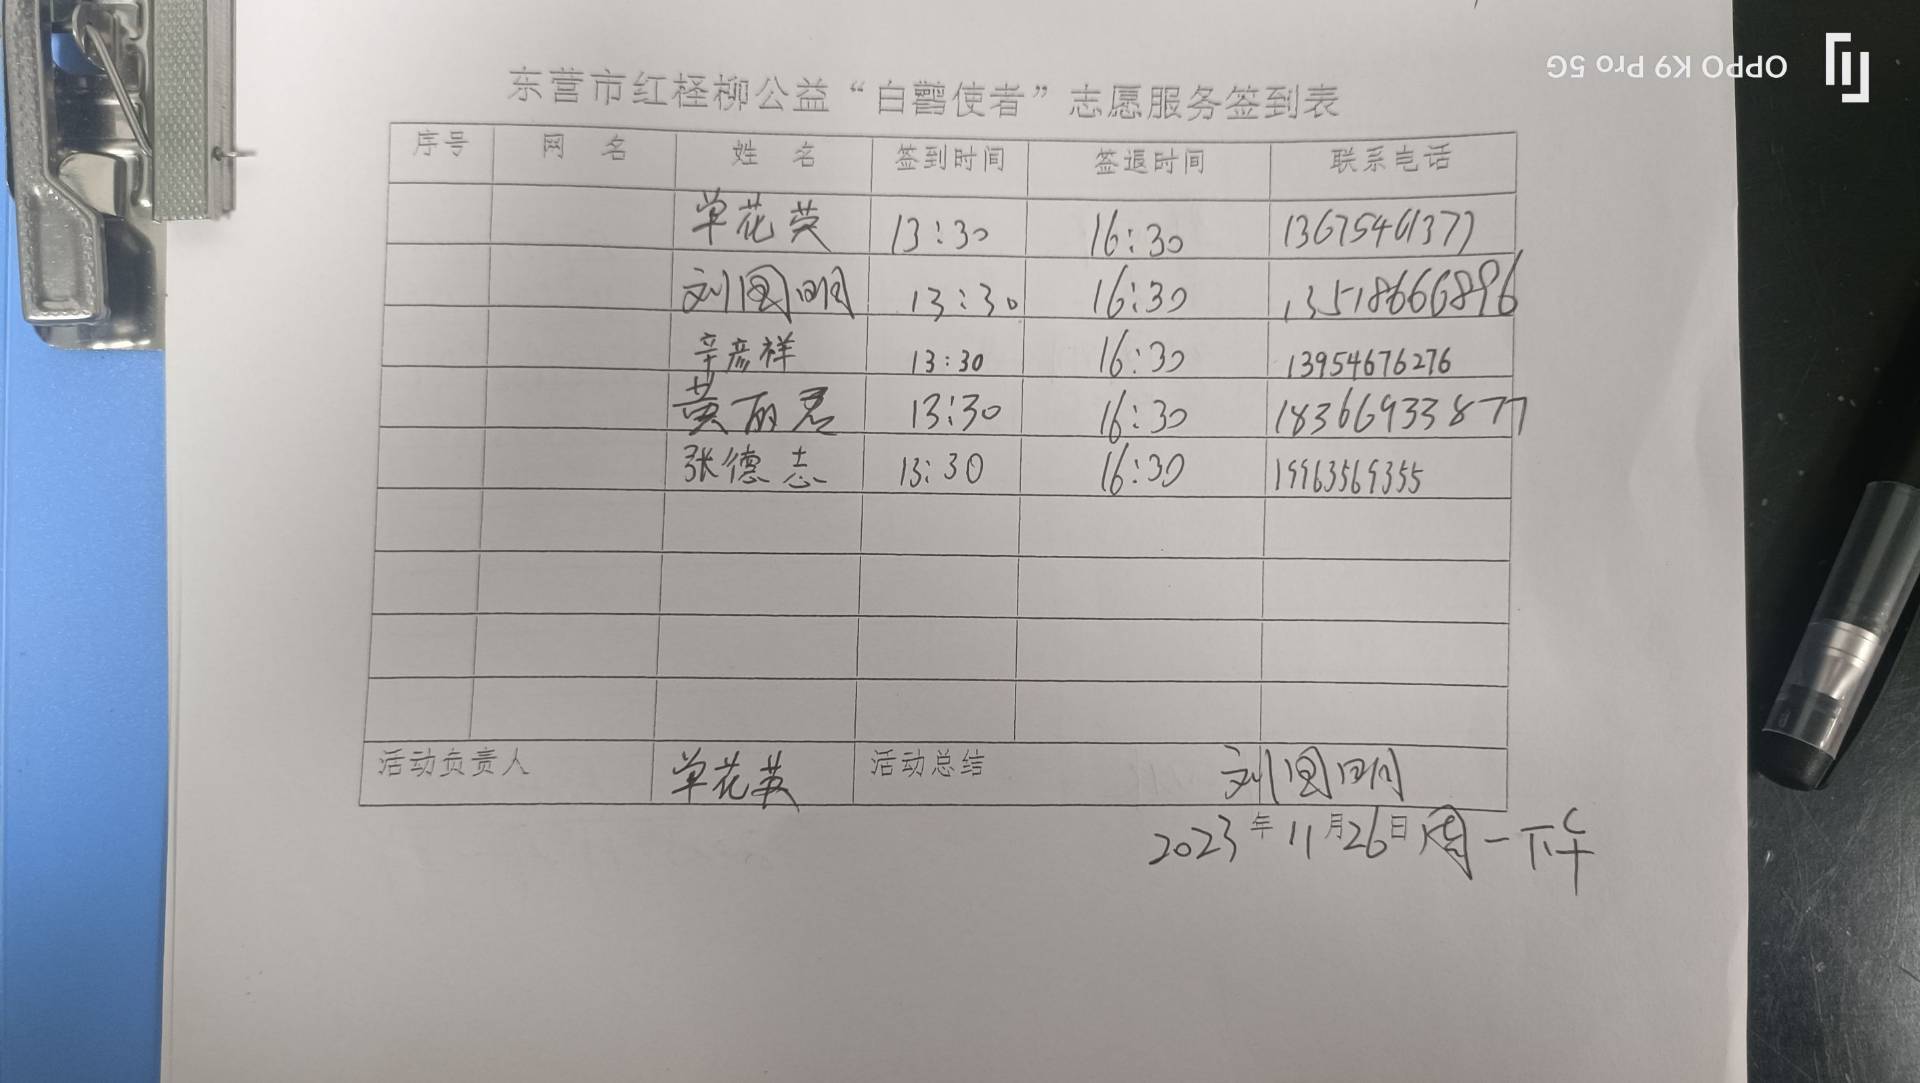 OPPO K9 Pro 5G
东营市红柽柳公益“白鹳使者”志愿服务签到表
序号 网名 姓名 签到时间 签退时间 联系电话
单花英 13:30 16:30 13675461377
刘国明 13:30 16:30 13518666896
辛彦祥 13:30 16:30 13954676276
黄丽君 13:30 16:30 18366933877
张德志 13:30 16:30 19963569355
活动负责人 单花英 活动总结 刘国明
2023年11月26日 周一下午